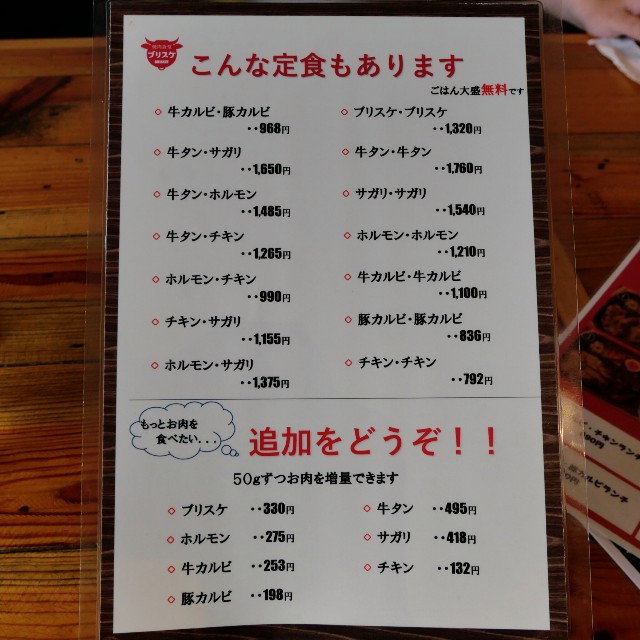 焼肉食堂
ブリスケ
こんな定食もあります
ごはん大盛無料です
◇ 牛カルビ・豚カルビ
・・968円
◇ 牛タン・サガリ
・・1,650円
◇ 牛タン・ホルモン
・・1,485円
◇ 牛タン・チキン
・・1,265円
◇ ホルモン・チキン
・・990円
◇ チキン・サガリ
・・1,155円
◇ ホルモン・サガリ
・・1,375円
◇ ブリスケ・ブリスケ
・・1,320円
◇ 牛タン・牛タン
・・1,760円
◇ サガリ・サガリ
・・1,540円
◇ ホルモン・ホルモン
・・1,210円
◇ 牛カルビ・牛カルビ
・・1,100円
◇ 豚カルビ・豚カルビ
・・836円
◇ チキン・チキン
・・792円
もっとお肉を
食べたい...
追加をどうぞ！！
50gずつお肉を増量できます
◇ ブリスケ ・・330円
◇ ホルモン ・・275円
◇ 牛カルビ ・・253円
◇ 豚カルビ ・・198円
◇ 牛タン ・・495円
◇ サガリ ・・418円
◇ チキン ・・132円
・チキンランチ
豚カルビランチ